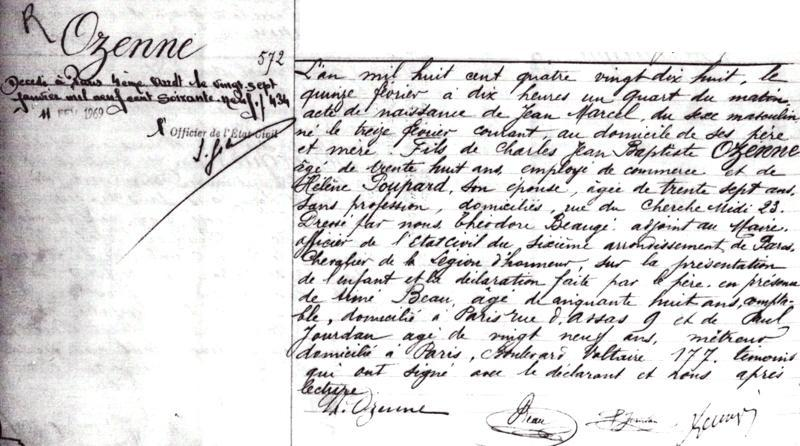 R
Ozenne
572
Décédé à Paris 4ème Arrdt le vingt sept
janvier mil neuf cent soixante neuf ./. 434
11 FEV 1969
L' Officier de l'État Civil
L'an mil huit cent quatre vingt dix huit, le
quinze février à dix heures un quart du matin,
acte de naissance de Jean Marcel, du sexe masculin
né le treize février courant, au domicile de ses père
et mère. Fils de Charles Jean Baptiste OZENNE
âgé de trente huit ans, employé de commerce et de
Hélène Poupard, son épouse, âgée de trente sept ans,
sans profession, domiciliés, rue du Cherche Midi 23.
Dressé par nous Théodore Beaugé, adjoint au Maire,
officier de l'état civil du sixième arrondissement de Paris,
Chevalier de la Légion d'honneur, sur la présentation
de l'enfant et la déclaration faite par le père, en présence
de Aimé Beau, âgé de cinquante huit ans, compta-
ble, domicilié à Paris rue d'Assas 9 et de Paul
Jourdan âgé de vingt neuf ans, métreur
domicilié à Paris, Boulevard Voltaire 177. témoins
qui ont signé avec le déclarant et nous après
lecture
Ozenne
Beau